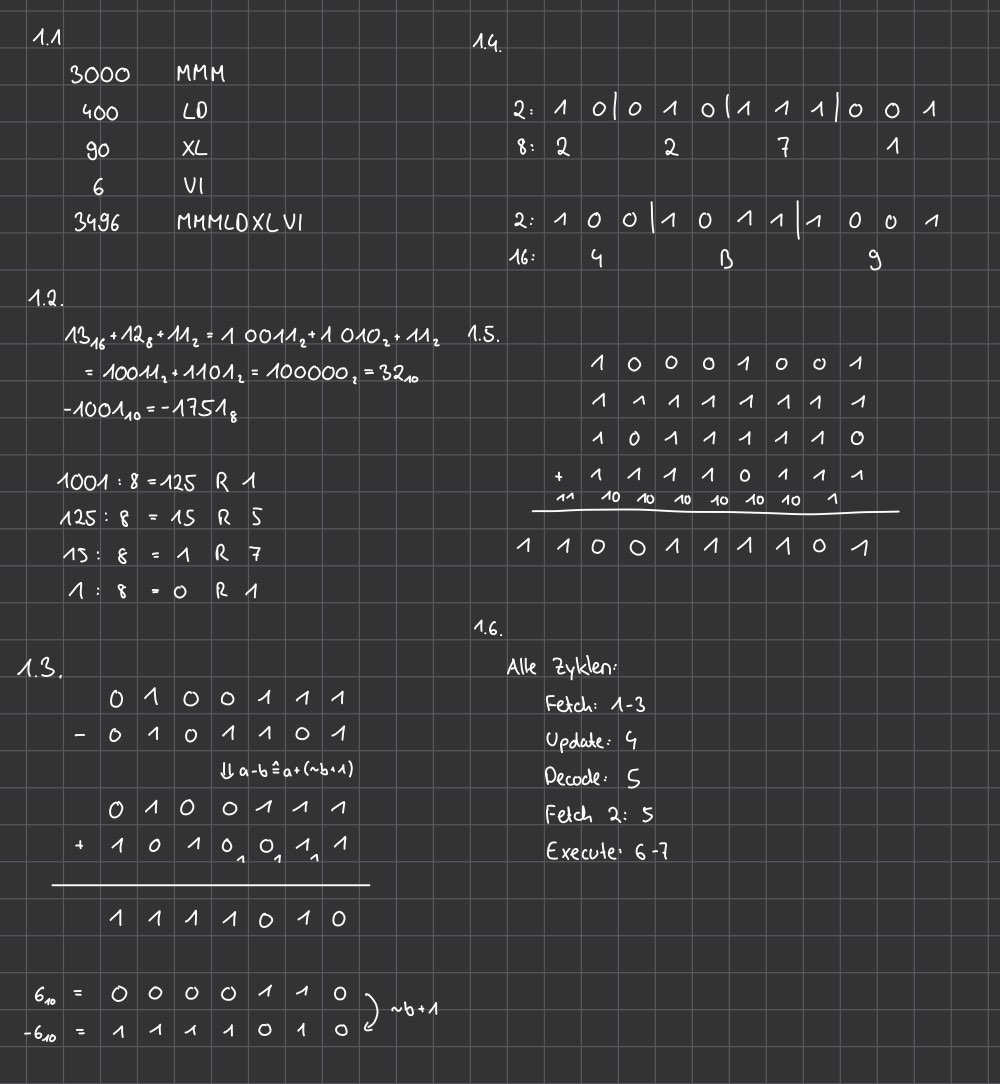 1.1
3000 MMM
400 LD
90 XL
6 VI
3496 MMMLDXLVI
1.2.
13₁₆+12₈+11₂ = 1 0011₂+1 010₂+11₂
= 10011₂+1101₂ = 100000₂ = 32₁₀
-1001₁₀ = -1751₈
1001 : 8 = 125 R 1
125 : 8 = 15 R 5
15 : 8 = 1 R 7
1 : 8 = 0 R 1
1.3.
0 1 0 0 1 1 1
- 0 1 0 1 1 0 1
⇓ a-b ≙ a+(~b+1)
0 1 0 0 1 1 1
+ 1 0 1 0₁ 0₁ 1₁ 1
1 1 1 1 0 1 0
6₁₀ = 0 0 0 0 1 1 0
-6₁₀ = 1 1 1 1 0 1 0
~b+1
1.4.
2: 1 0|0 1 0|1 1 1|0 0 1
8: 2 2 7 1
2: 1 0 0|1 0 1 1|1 0 0 1
16: 4 B 9
1.5.
1 0 0 0 1 0 0 1
1 1 1 1 1 1 1 1
1 0 1 1 1 1 1 0
+ 1 1 1 1 0 1 1 1
11 10 10 10 10 10 10 1
1 1 0 0 1 1 1 1 0 1
1.6.
Alle Zyklen:
Fetch: 1-3
Update: 4
Decode: 5
Fetch 2: 5
Execute: 6-7